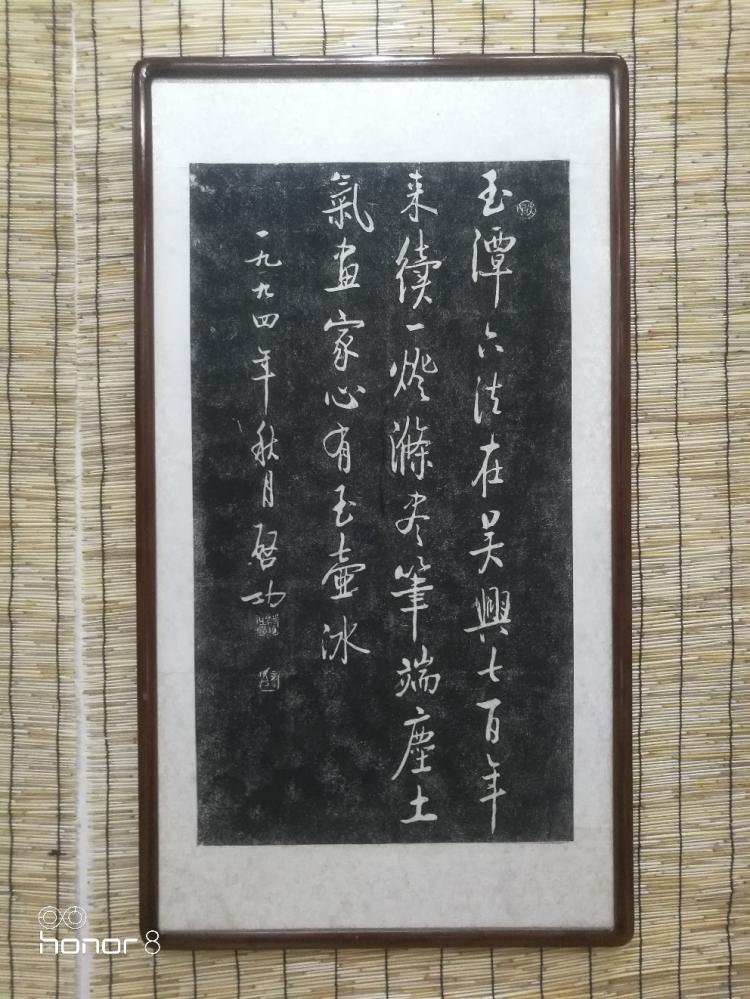 玉潭六法在吴興七百年
来續一燈滌尽筆端塵土
氣画家心有玉壺冰
一九九四年秋月啓功
honor 8